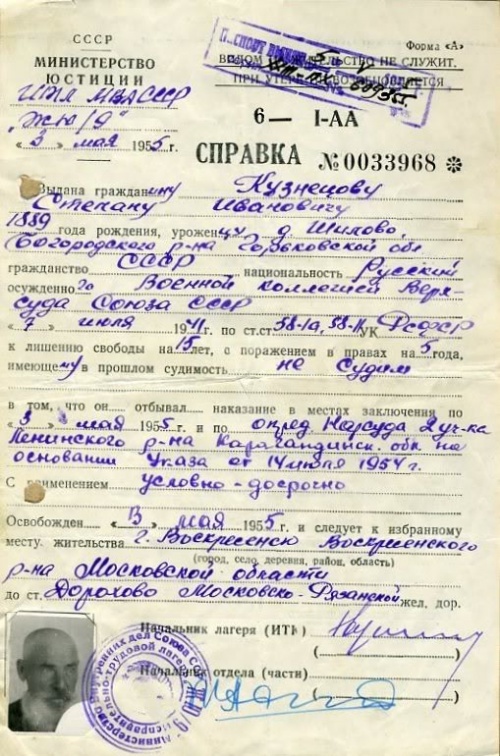 СССР
МИНИСТЕРСТВО
ЮСТИЦИИ
ИТЛ МВД СССР
„ЖЮ/9"
« 3 » мая 1955 г.
Форма «А»
ВИДОМ НА ЖИТЕЛЬСТВО НЕ СЛУЖИТ.
ПРИ УТЕРЕ НЕ ВОЗОБНОВЛЯЕТСЯ
6— I-АА
СПРАВКА №0033968 *
Выдана гражданину Кузнецову
Степану Ивановичу
1889 года рождения, уроженцу д. Шилово,
Богородского р-на Горьковской обл.
гражданство СССР национальность Русский
осужденного Военной Коллегией Верх-
суда Союза ССР
« 7 » июля 1941 г. по ст.ст. 58-1а, УК РСФСР
к лишению свободы на 15 лет, с поражением в правах на 5 года,
имеющему в прошлом судимость не судим
в том, что он отбывал наказание в местах заключения по
« 3 » мая 1955 г. и по опред. Нарсуда 2 уч-ка
Ленинского р-на Карагандинск. обл. на
основании Указа от 14 июля 1954 г.
С применением условно-досрочно
Освобожден « 3 » мая 1955 г. и следует к избранному
месту жительства г. Воскресенск Воскресенского
(город, село, деревня, район, область)
р-на Московской области
до ст. Дорохово Московско-Рязанской жел. дор.
Начальник лагеря (ИТК)
( )
Начальник отдела (части)
( )
Министерство Внутренних дел Союза ССР
Исправительно-трудовой лагерь